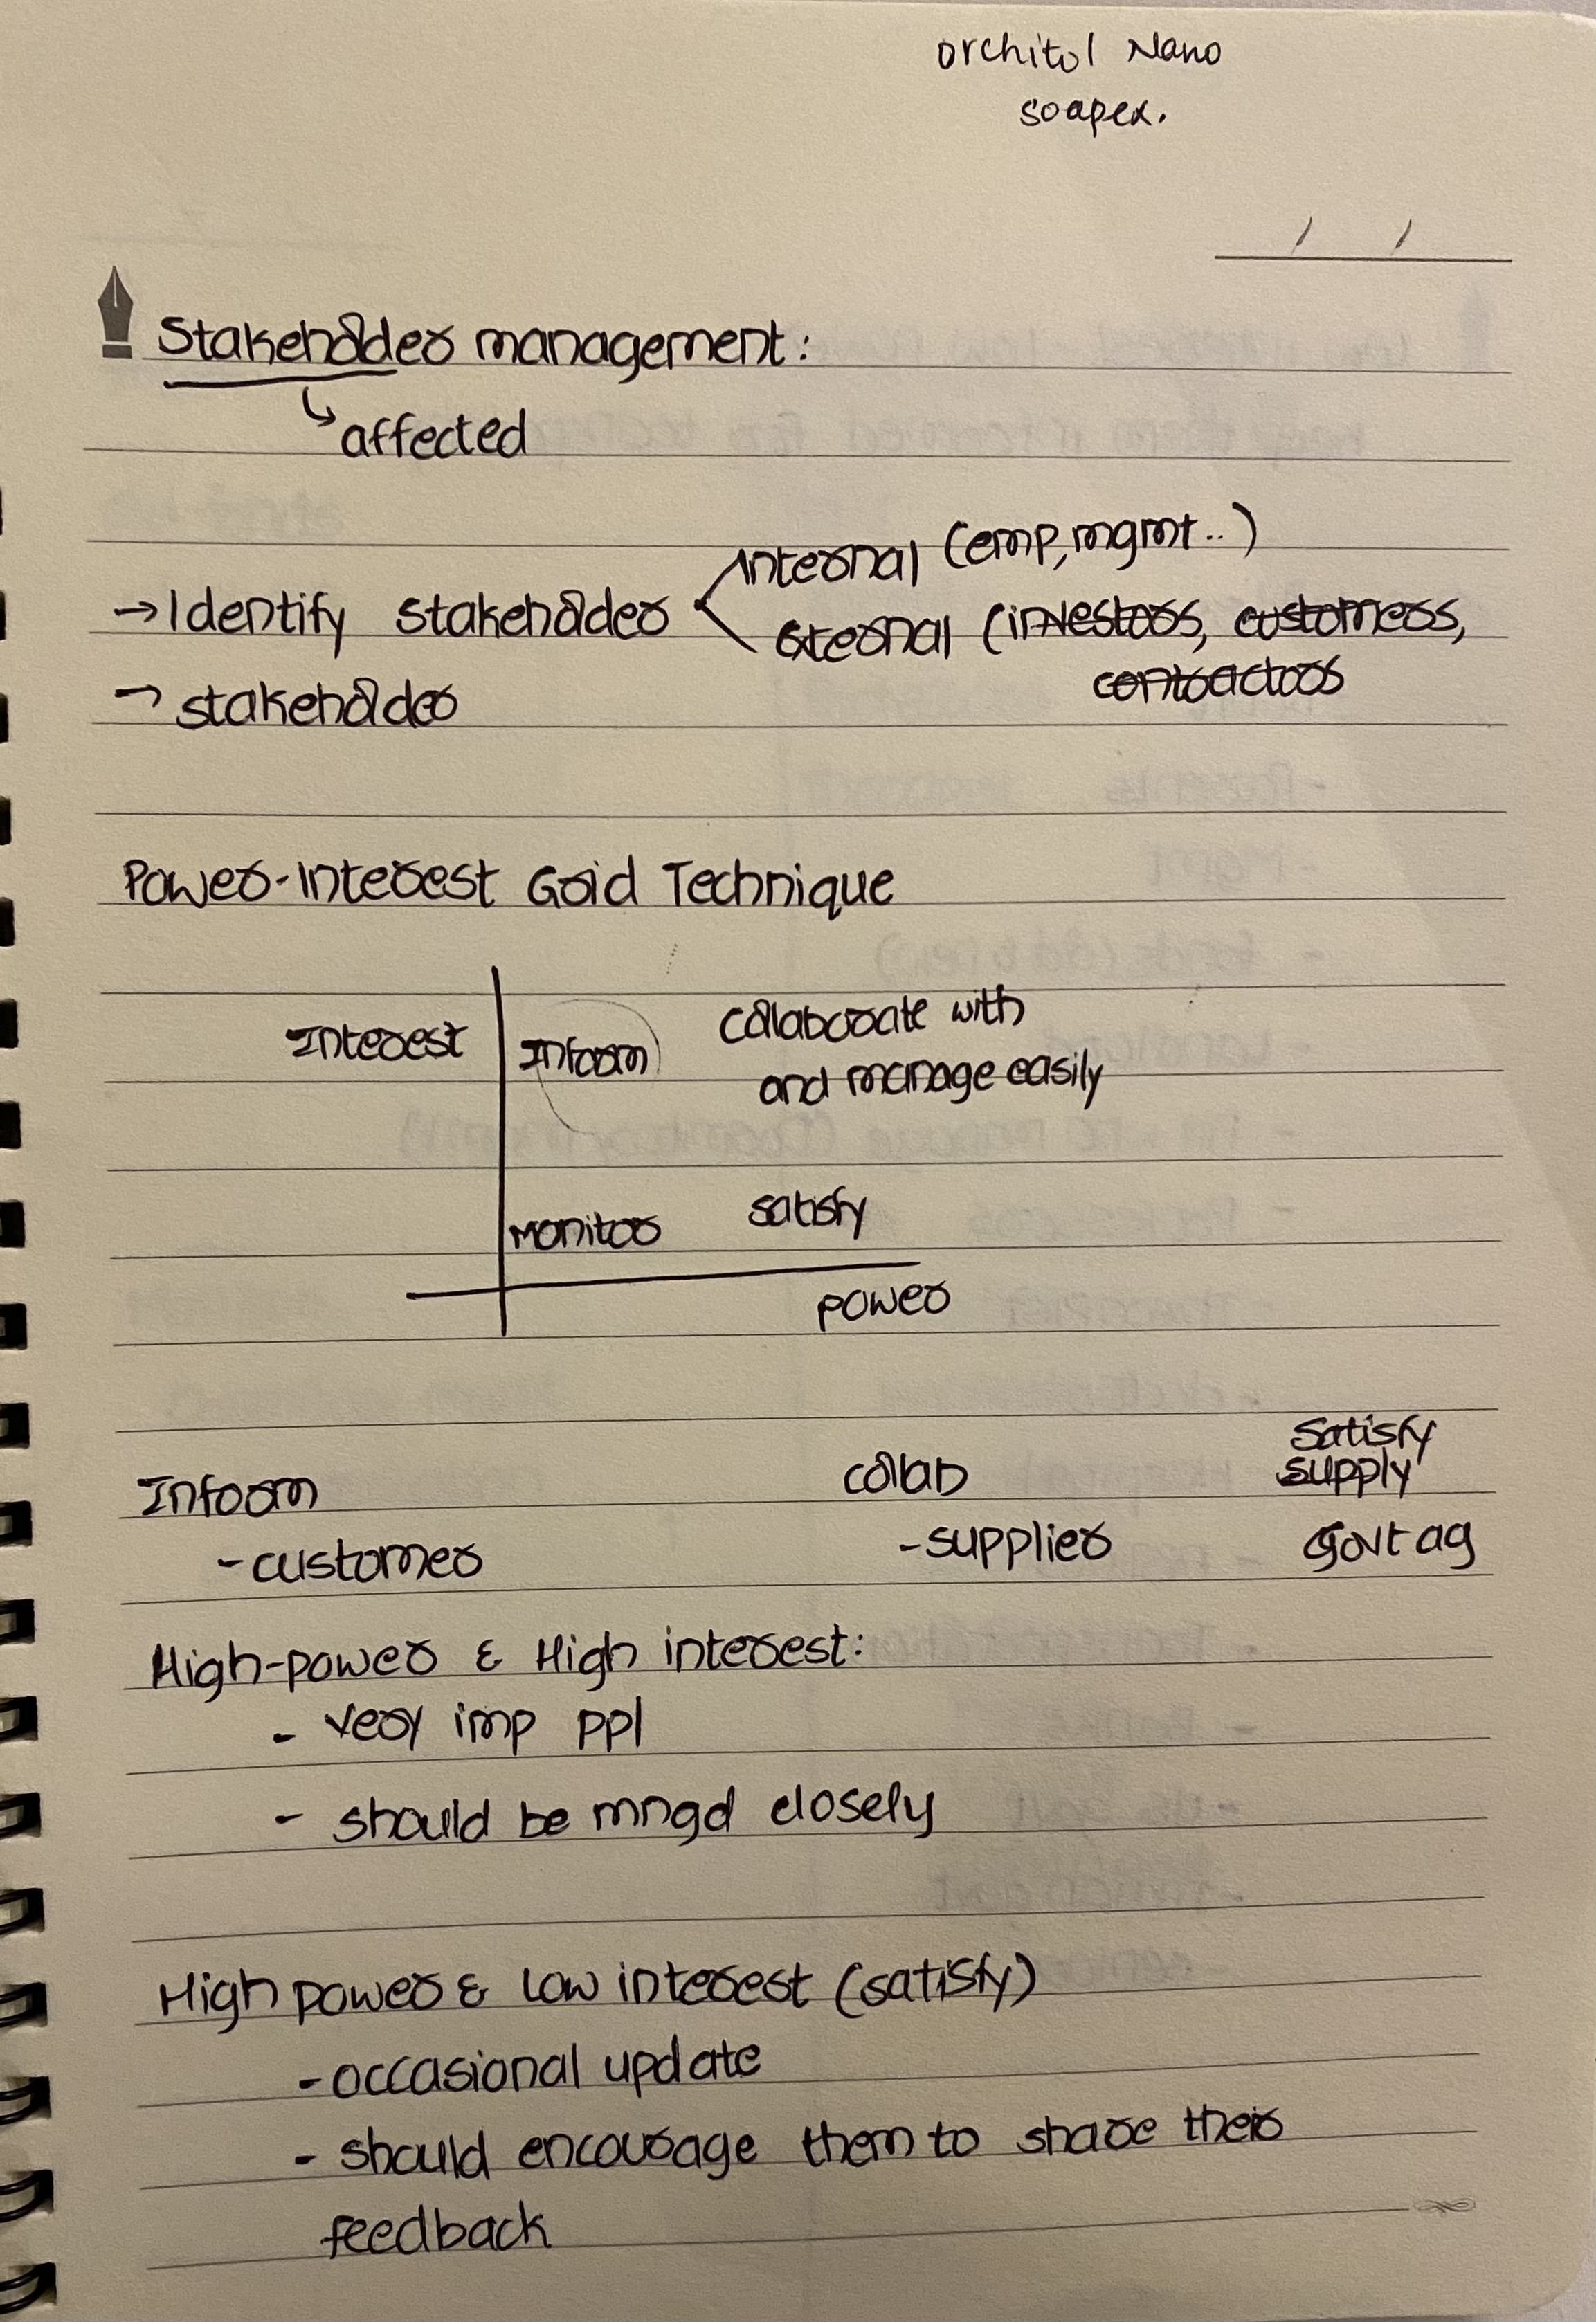 Orchitol Nano
soapex.
/ /
Stakeholder management:
↳ affected
→ Identify stakeholder < Internal (emp, mgmt..)
External (investors, customers,
contractors
→ stakeholder
Power-Interest Grid Technique
Interest Inform Collaborate with
and manage easily
Monitor satisfy
power
Inform collab Satisfy
supply
- customer - supplier Govt ag
High-power & High interest:
- very imp ppl
- should be mngd closely
High power & Low interest (satisfy)
- occasional update
- should encourage them to share their
feedback